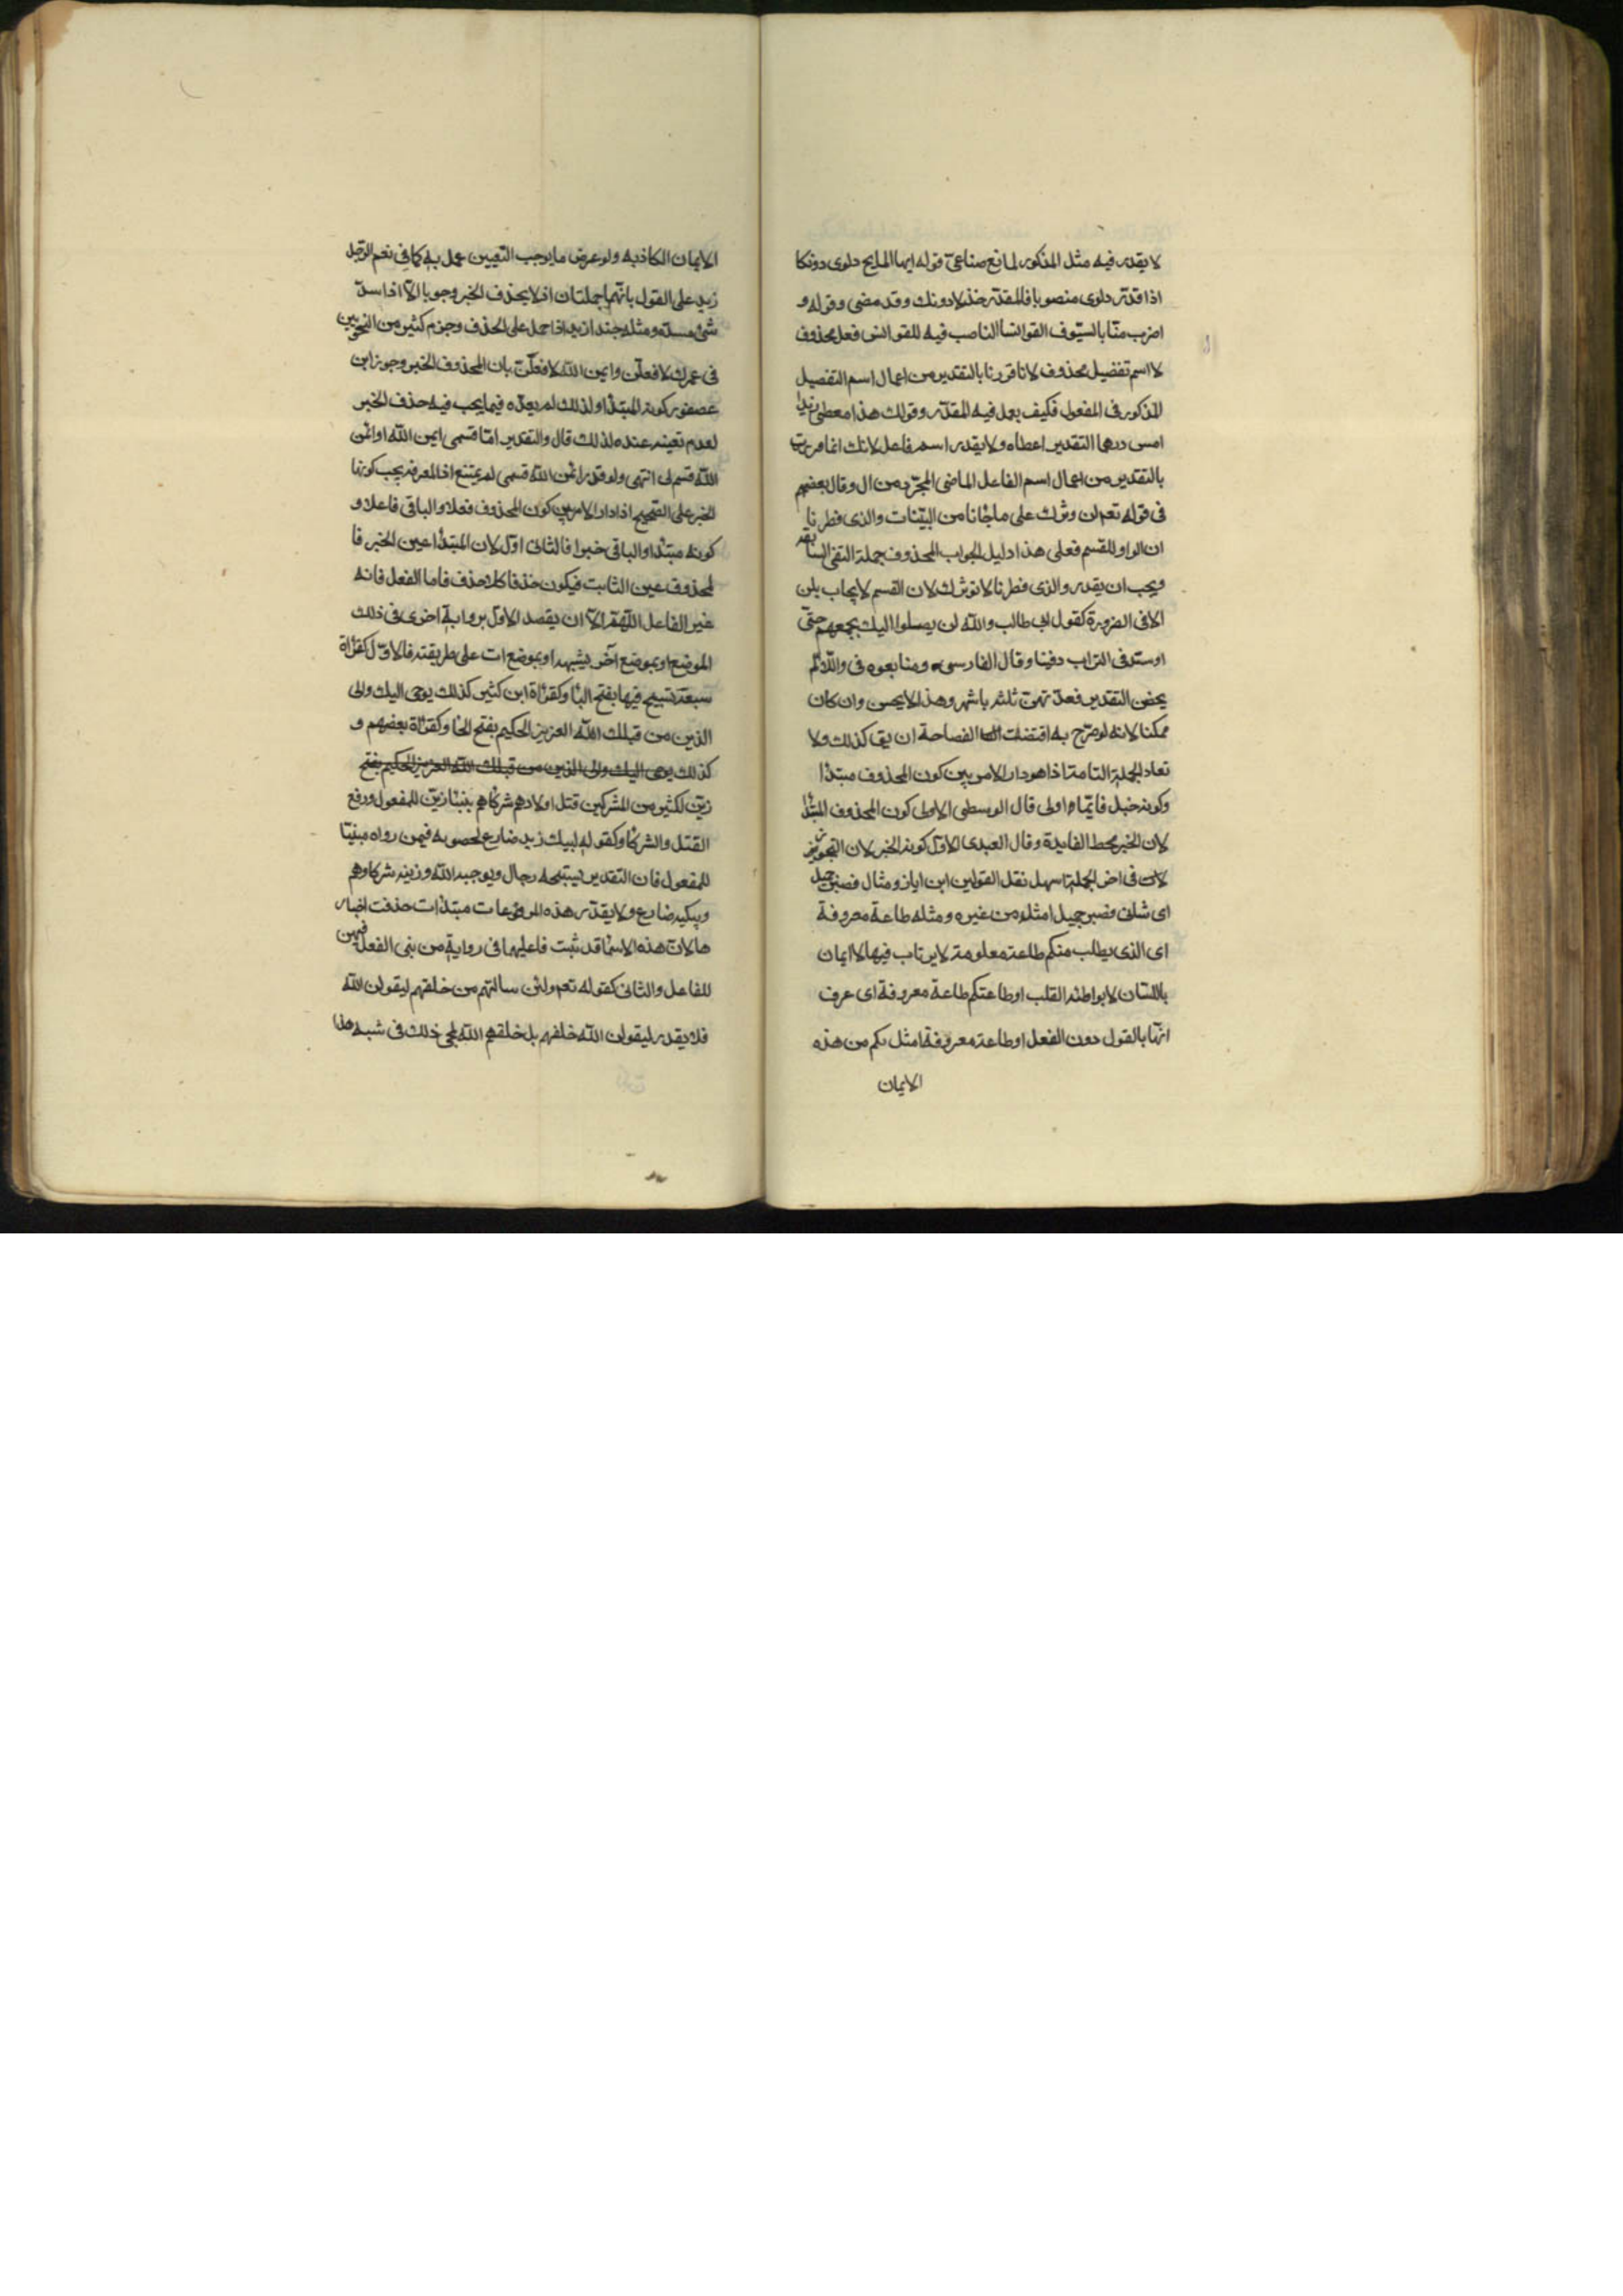 لا يقدر فيه مثل المذكور لمانع صناعى قوله ايها المايح دلوى دونكا
اذا قدر دلوى منصوبا فالمقدر خذ لا دونك وقد مضى وقوله و
اضرب منا بالسيوف القوانسا الناصب فيه للقوانس فعل محذوف
لا اسم تفضيل محذوف لانا قررنا بالتقدير من اعمال اسم التفضيل
المذكور فى المفعول فكيف يعمل فيه المقدر وقولك هذا معطى زيدا
امس درهما التقدير اعطاه ولا يقدر اسم فاعل لانك انما فررت
بالتقدير من اعمال اسم الفاعل الماضى المجرد من ال وقال بعضهم
فى قوله تعم لن نوثرك على ما جاءنا من البينات والذى فطرنا
ان الواو للقسم فعلى هذا دليل الجواب المحذوف جملة النفى السابقه
ويجب ان يقدر والذى فطرنا لا نوثرك لان القسم لا يجاب بلن
الا فى الضرورة كقول ابى طالب والله لن يصلوا اليك بجمعهم حتى
اوسد فى التراب دفينا وقال الفارسى ومتابعوه فى واللائى لم
يحضن التقدير فعدتهن ثلثه باشهر وهذا لا يحسن وان كان
ممكنا لانه لو صرح به اقتضت الفصاحة ان يق كذلك ولا
تعاد الجملة التامة اذا هو دار الامر بين كون المحذوف مبتدا
وكونه خبل فايهما اولى قال الوسطى الاولى كون المحذوف المبتدا
لان الخبر محط الفايدة وقال العبدى الاول كونه الخبر لان التجويز
فى اخر الجملة اسهل نقل القولين ابن اياز ومثال فصبر جميل
اى شانى فصبر جميل امثل من غيره ومثله طاعة معروفة
اى الذى يطلب منكم طاعة معلومة لا يرتاب فيها لا ايمان
باللسان لا يواطئه القلب او طاعتكم طاعة معروفة اى عرف
انها بالقول دون الفعل او طاعة معروفة امثل بكم من هذه
الايمان
الايمان الكاذبه ولو عرض ما يوجب التعيين عمل به كما فى نعم الرجل
زيد على القول بانهما جملتان اذ لا يحذف الخبر وجوبا الا اذا سد
شئ مسده ومثله حبذا زيد اذا حمل على الحذف وجزم كثير من النحويين
فى عمرك لافعلن وايمن الله لافعلن بان المحذوف الخبر وجوز ابن
عصفور كونه المبتدا ولذلك لم يعده فيما يجب فيه حذف الخبر
لعدم تعينه عنده لذلك قال والتقدير اما قسمى ايمن الله او ايمن
الله قسم لى انتهى ولو قدر ايمن الله قسمى لم يمتنع اذ المعرفه يجب كونها
الخبر على الصحيح اذا دار الامر بين كون المحذوف فعلا والباقى فاعلا و
كونه مبتدا والباقى خبرا فالثانى اول لان المبتدا عين الخبر فا
لمحذوف عين الثابت فيكون حذفا كلا حذف فاما الفعل فانه
غير الفاعل اللهم الا ان يقصد الاول برواية اخرى فى ذلك
الموضع او بموضع آخر يشبهه او بموضع ات على طريقته فالاول كقراة
سبعة تسبح فيها بفتح البا وكقراة ابن كثير كذلك يوحى اليك والى
الذين من قبلك الله العزيز الحكيم بفتح الحا وكقراة بعضهم و
كذلك يوحى اليك والى الذين من قبلك الله العزيز الحكيم بفتح
زين لكثير من المشركين قتل اولادهم شركاهم ببنا زين للمفعول ورفع
القتل والشركا وكقوله لبيك زيد ضارع لخصومه فيمن رواه مبنيا
للمفعول فان التقدير يسبحه رجال ويوحيه الله وزينه شركاوهم
ويبكيه ضارع ولا يقدر هذه المرفوعات مبتدات حذفت اخبار
ها لان هذه الاسما قد ثبت فاعليها فى رواية من بنى الفعل فيهن
للفاعل والثانى كقوله تعم ولئن سالتهم من خلقهم ليقولن الله
فلا يقدر ليقولن الله خلقهم بل خلقهم الله لمجى ذلك فى شبه هذا